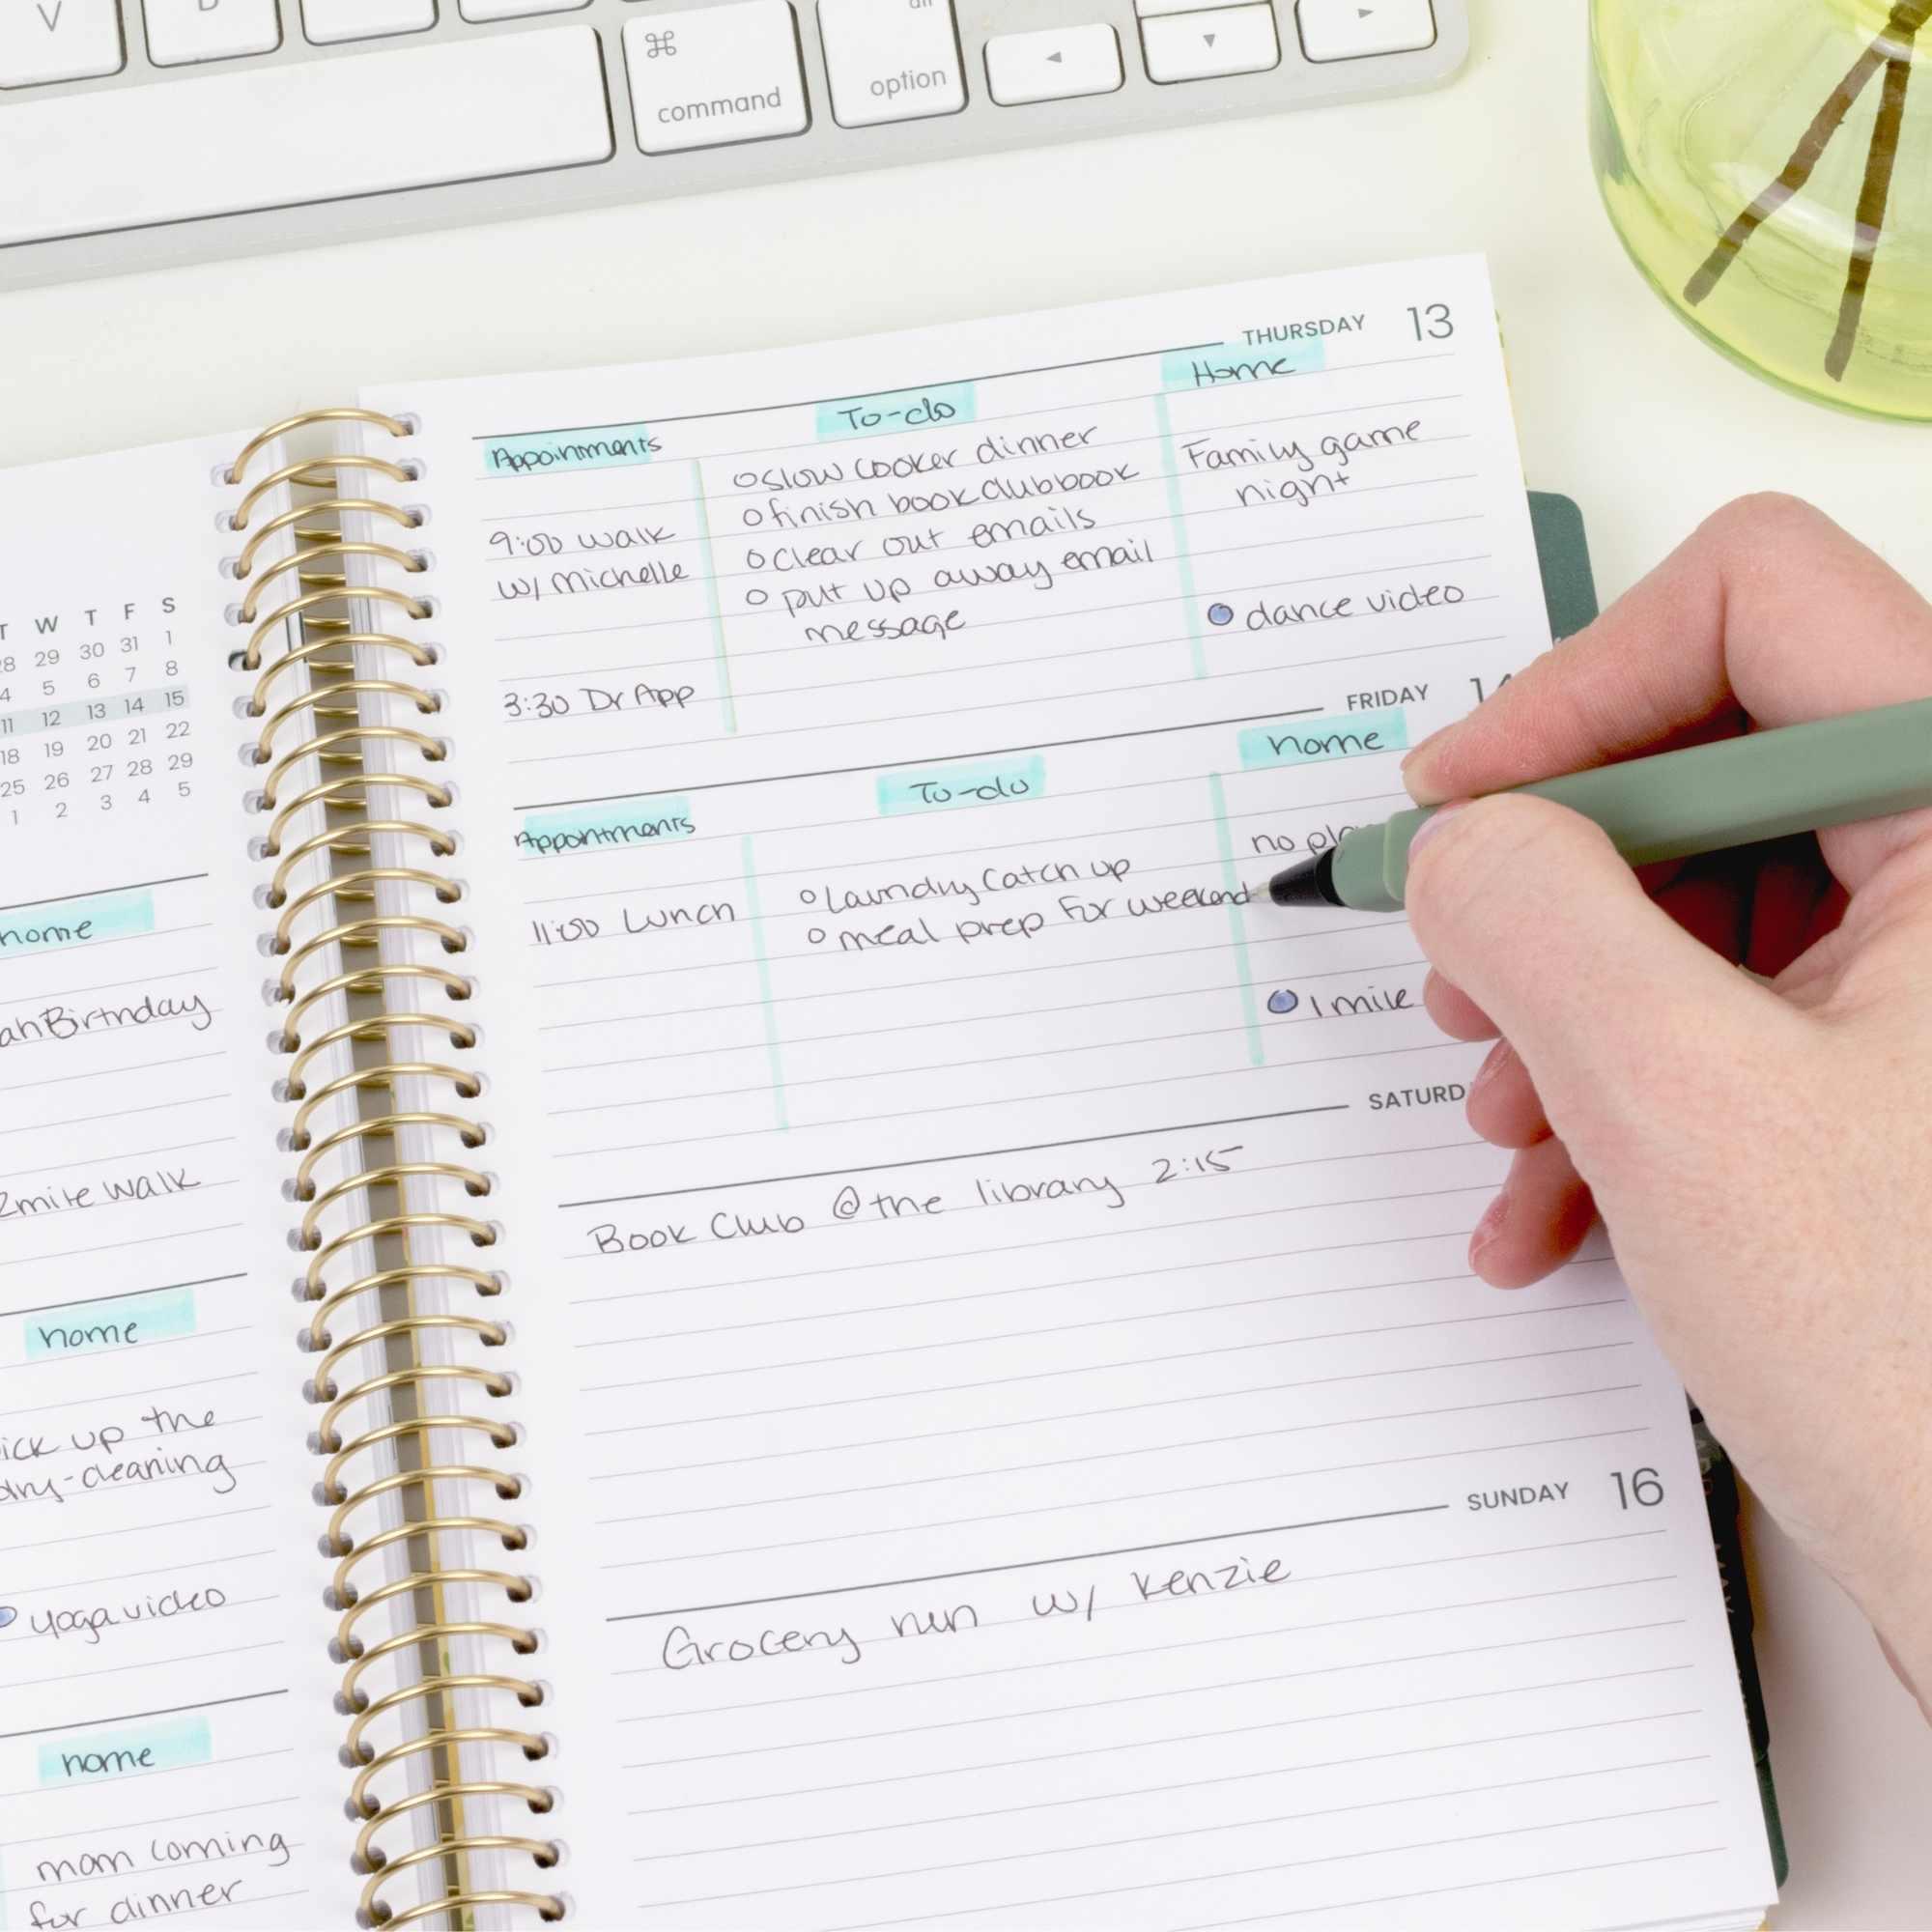 V
⌘
command
option
◄
▼
►
W T F S
29 30 31 1
4 5 6 7 8
11 12 13 14 15
18 19 20 21 22
25 26 27 28 29
1 2 3 4 5
home
Birthday
2 mile walk
home
up the
dry-cleaning
yoga video
home
mom coming
for dinner
THURSDAY 13
Appoinments
To-do
Home
9:00 walk
w/ Michelle
3:30 Dr App
o slow cooker dinner
o finish book club book
o clear out emails
o put up away email
message
Family game
night
dance video
FRIDAY
Appointments
To-do
home
11:00 Lunch
o Laundry Catch up
o meal prep for weekend
no
1 mile
SATURD
Book Club @ the library 2:15
SUNDAY 16
Grocery run w/ Kenzie